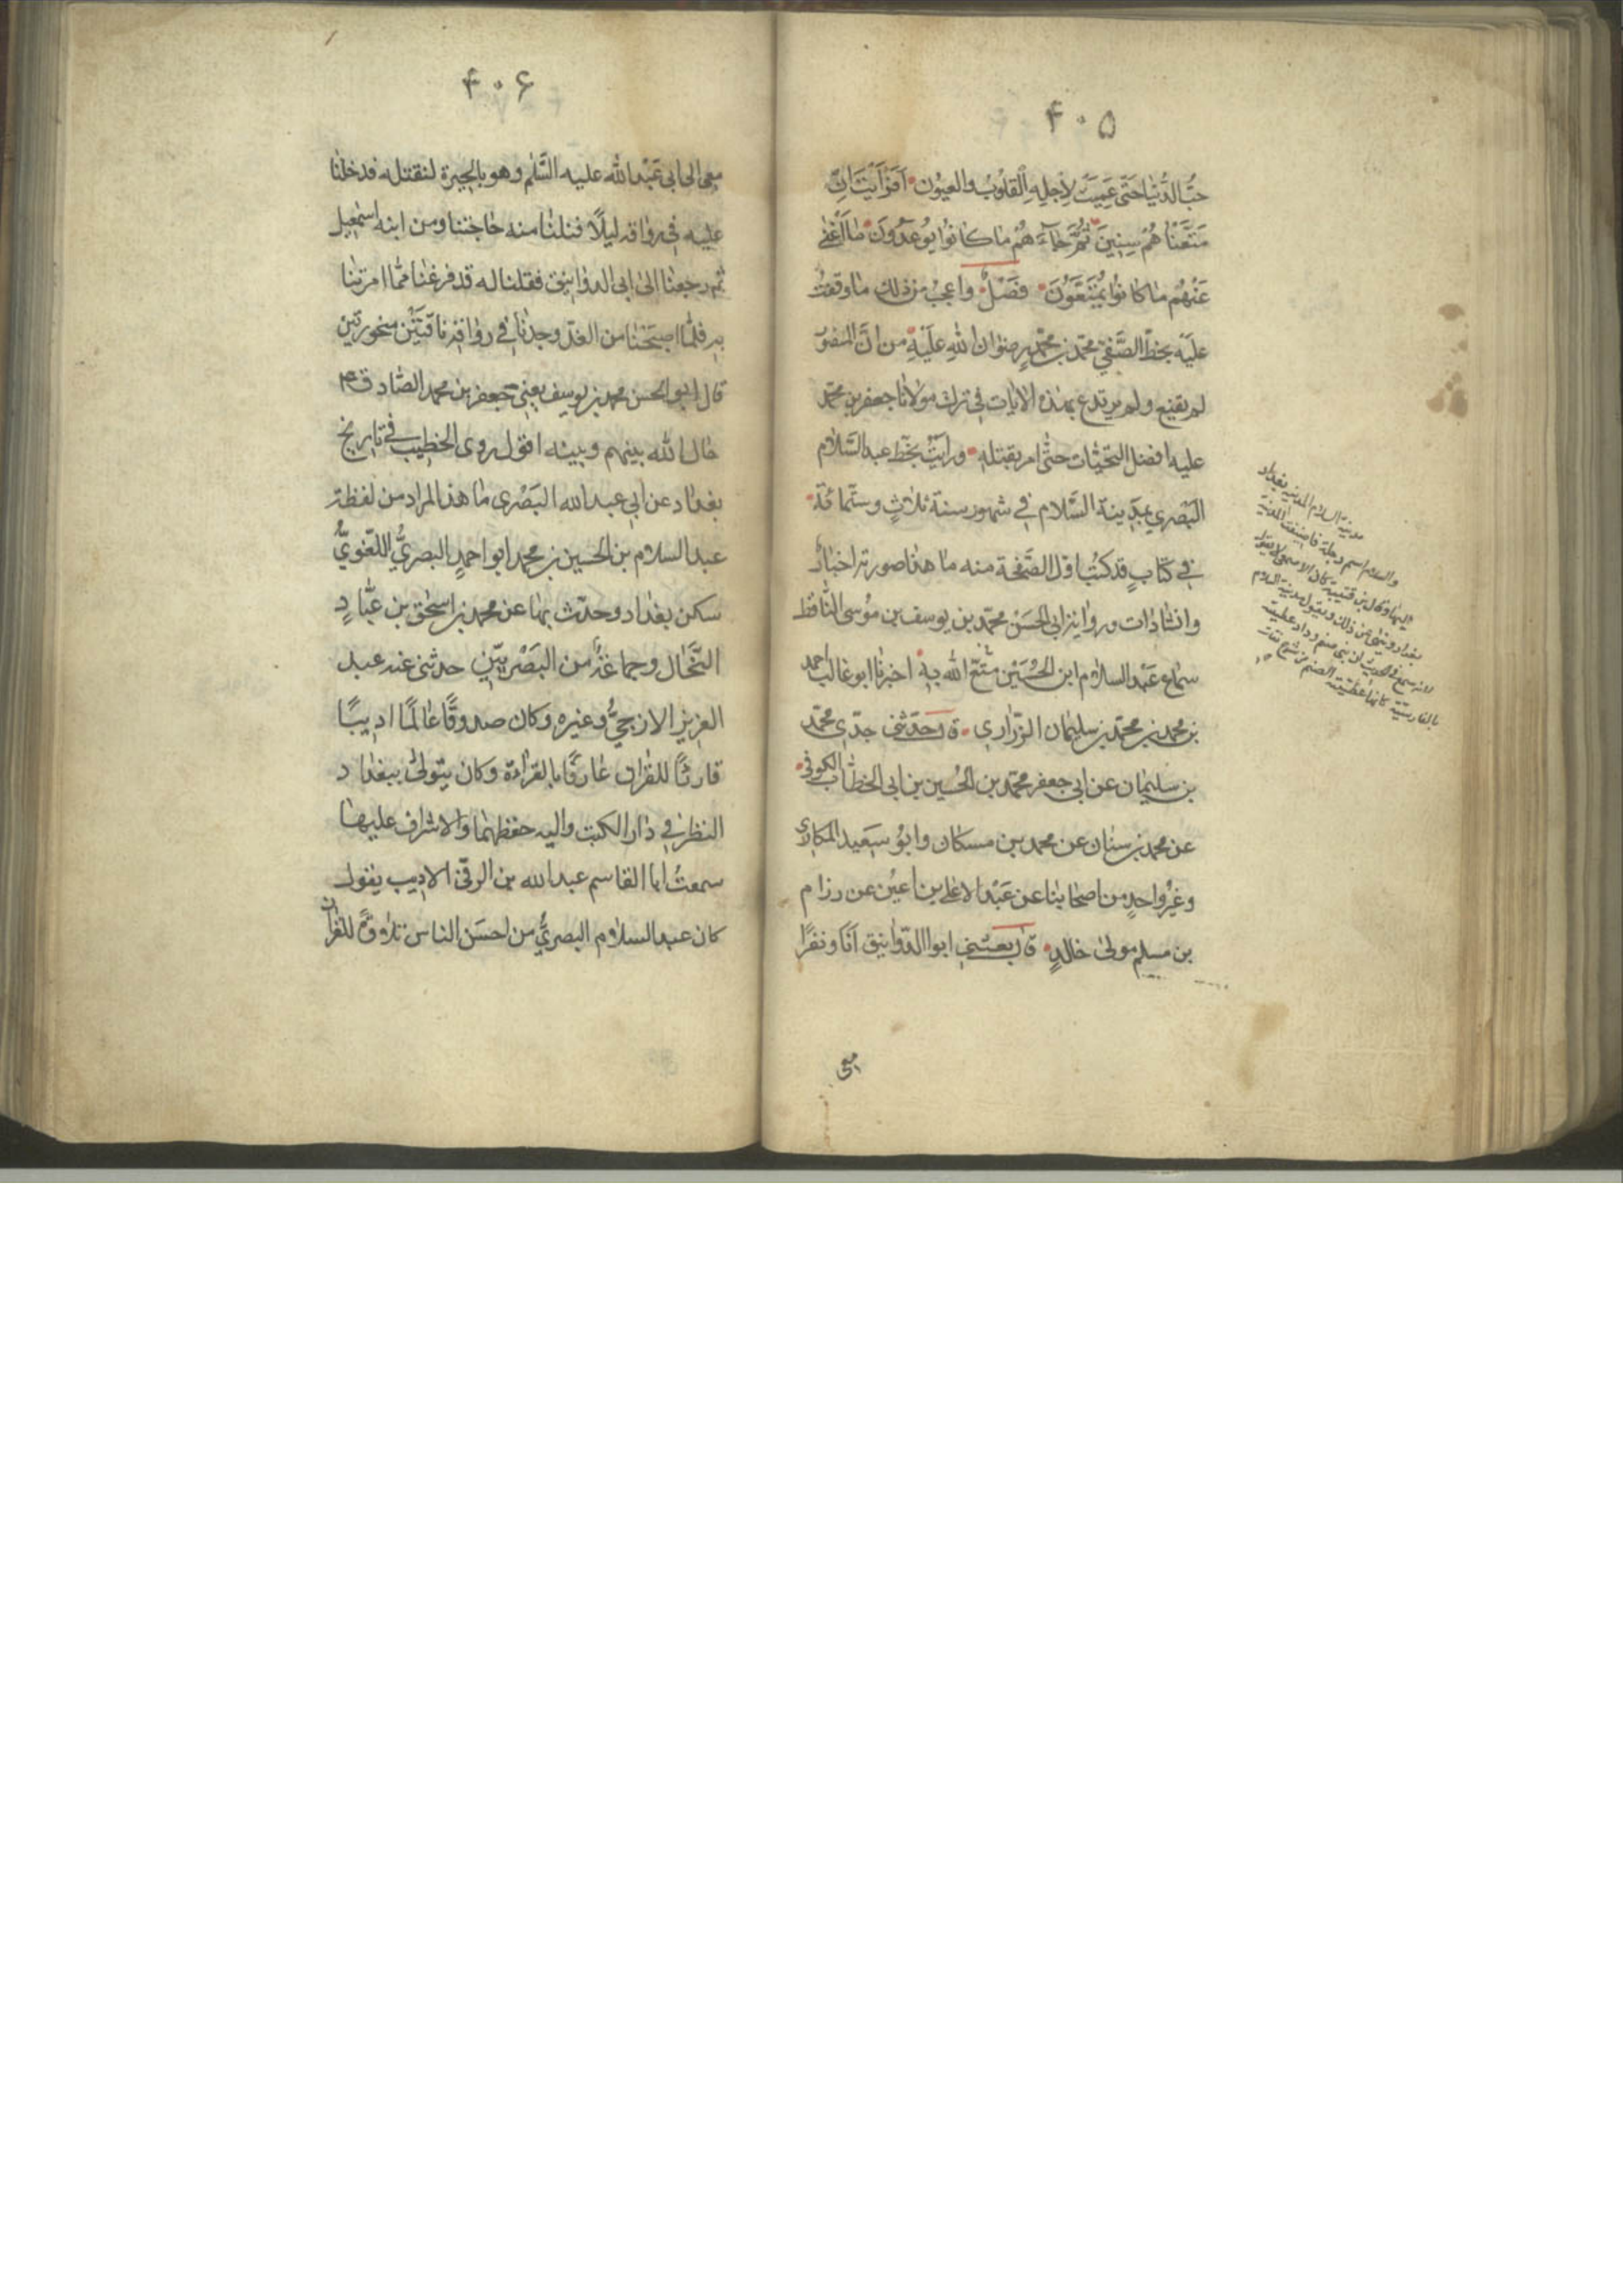 ۴۰۵
حبّ الدُّنيا حتى عَمِيَتْ لِاَجلِهِ القلوُبُ والعيوُن اَفَرَاَيْتَ اِنْ
مَتَّعْنٰاهُمْ سِنِينَ ثُمَّ جٰآءَهُمْ مٰا كٰانوُا يوُعَدوُنَ مٰا اَغْنٰى
عَنْهُم مٰا كٰانوُا يُمَتَّعوُنَ فَصْلٌ واعجبُ من ذلك مٰا وقفتُ
عليَه بخطّ الصَّفيّ محمّد بن محمّدٍ رضوٰان اللهِ عليَهِ من انّ المنصوُر
لم يقنع ولم يرتدع بهٰذه الاٰيات في ترك موَلانٰا جعفر بن محمّد
عليه افضل التحيّٰات حتّى امر بقتلهِ ورايَتُ بخطّ عبد السَّلاٰم
البَصْري بمدينة السَّلام في شهور سنة ثلاٰثٍ وستّمائة
في كتٰابٍ قد كتُب اوّل الصّفحة منه مٰا هذا صورته اخبٰارٌ
وانشٰادٰات ورواية ابي الحسَنْ محمّد بن يوسف بن موُسى النّٰاقط
سمٰاع عَبْد السلاٰم ابن الحُسَيْن متّعَ الله بهِ اخبرنٰا ابو غالب احمد
بن محمد بن محمّد بن سليمٰان الزّرٰاري قٰ وحدّثني جدّي محمّد
بن سليمٰان عن ابي جعفر محمّد بن الحُسين بن ابي الخطّٰاب الكوفي
عن محمد بن سنٰان عن محمد بن مسكان وابوُ سَعيد المكاري
وغيرُ واحدٍ من اصحٰابنٰا عن عَبْد الاعلى بن اعيُن عن رزام
بن مسلم موَلىٰ خٰالدٍ قٰ بعثني ابوا الدّوٰانيق اَنَا ونفرًا
معى
مدينة السلام المدينة بغداد
والسلام اسم دجلة فاضيفت المدينة
اليها وقال بن قتيبة كان الاصمعي لا يقول
بغداد وينهى عن ذلك ويقول مدينة السلام
لانه سمع في الحديث ان بغ صنم وداد عطية
بالفارسية كانها عطية الصنم
۴۰۶
معى الى ابي عَبْد الله عليه السَّلٰم وهو بالحِيرة لنقتله فدخلنٰا
عليه في روٰاقه ليلًا فنلنٰا منه حٰاجتنا ومن ابنه اسمٰعيل
ثم رجعنٰا الىٰ ابي الدوٰانيق فقلنا له قد فرغنٰا ممّا امرتنٰا
به فلمّا اصبَحْنٰا من الغد وجدنٰا في روٰاقه نٰاقتَيْن منحورتين
قال ابو الحسن محمد بن يوسف يعني جعفر بن محمد الصّٰادق ع
حٰال الله بينهم وبينه اقول روى الخطيب في تٰاريخ
بغدٰاد عن ابي عبد الله البَصْرى مٰا هذا المراد من لفظه
عبد السلاٰم بن الحسين بن محمد ابو احمدٍ البصريُّ اللّغويُّ
سكن بغدٰاد وحدّث بهٰا عن محمد بن اسحٰق بن عَبّٰادٍ
التّمّٰار وجمٰاعَةٍ من البَصْريّين حدثني عنه عبد
العزيز الازجيُّ وغيره وكان صدوقًا عٰالمًا اديبًا
قارئًا للقرٰان عٰارفًا بالقرٰاءة وكان يتولىٰ ببغدٰاد
النظر في دٰار الكتب واليه حفظهٰا والاشراف عليهٰا
سمعتُ ابا القاسم عبد الله بن الرقّي الاديب يقول
كان عبد السلاٰم البصريُّ من احسَن الناس تلاٰوةً للقرٰان